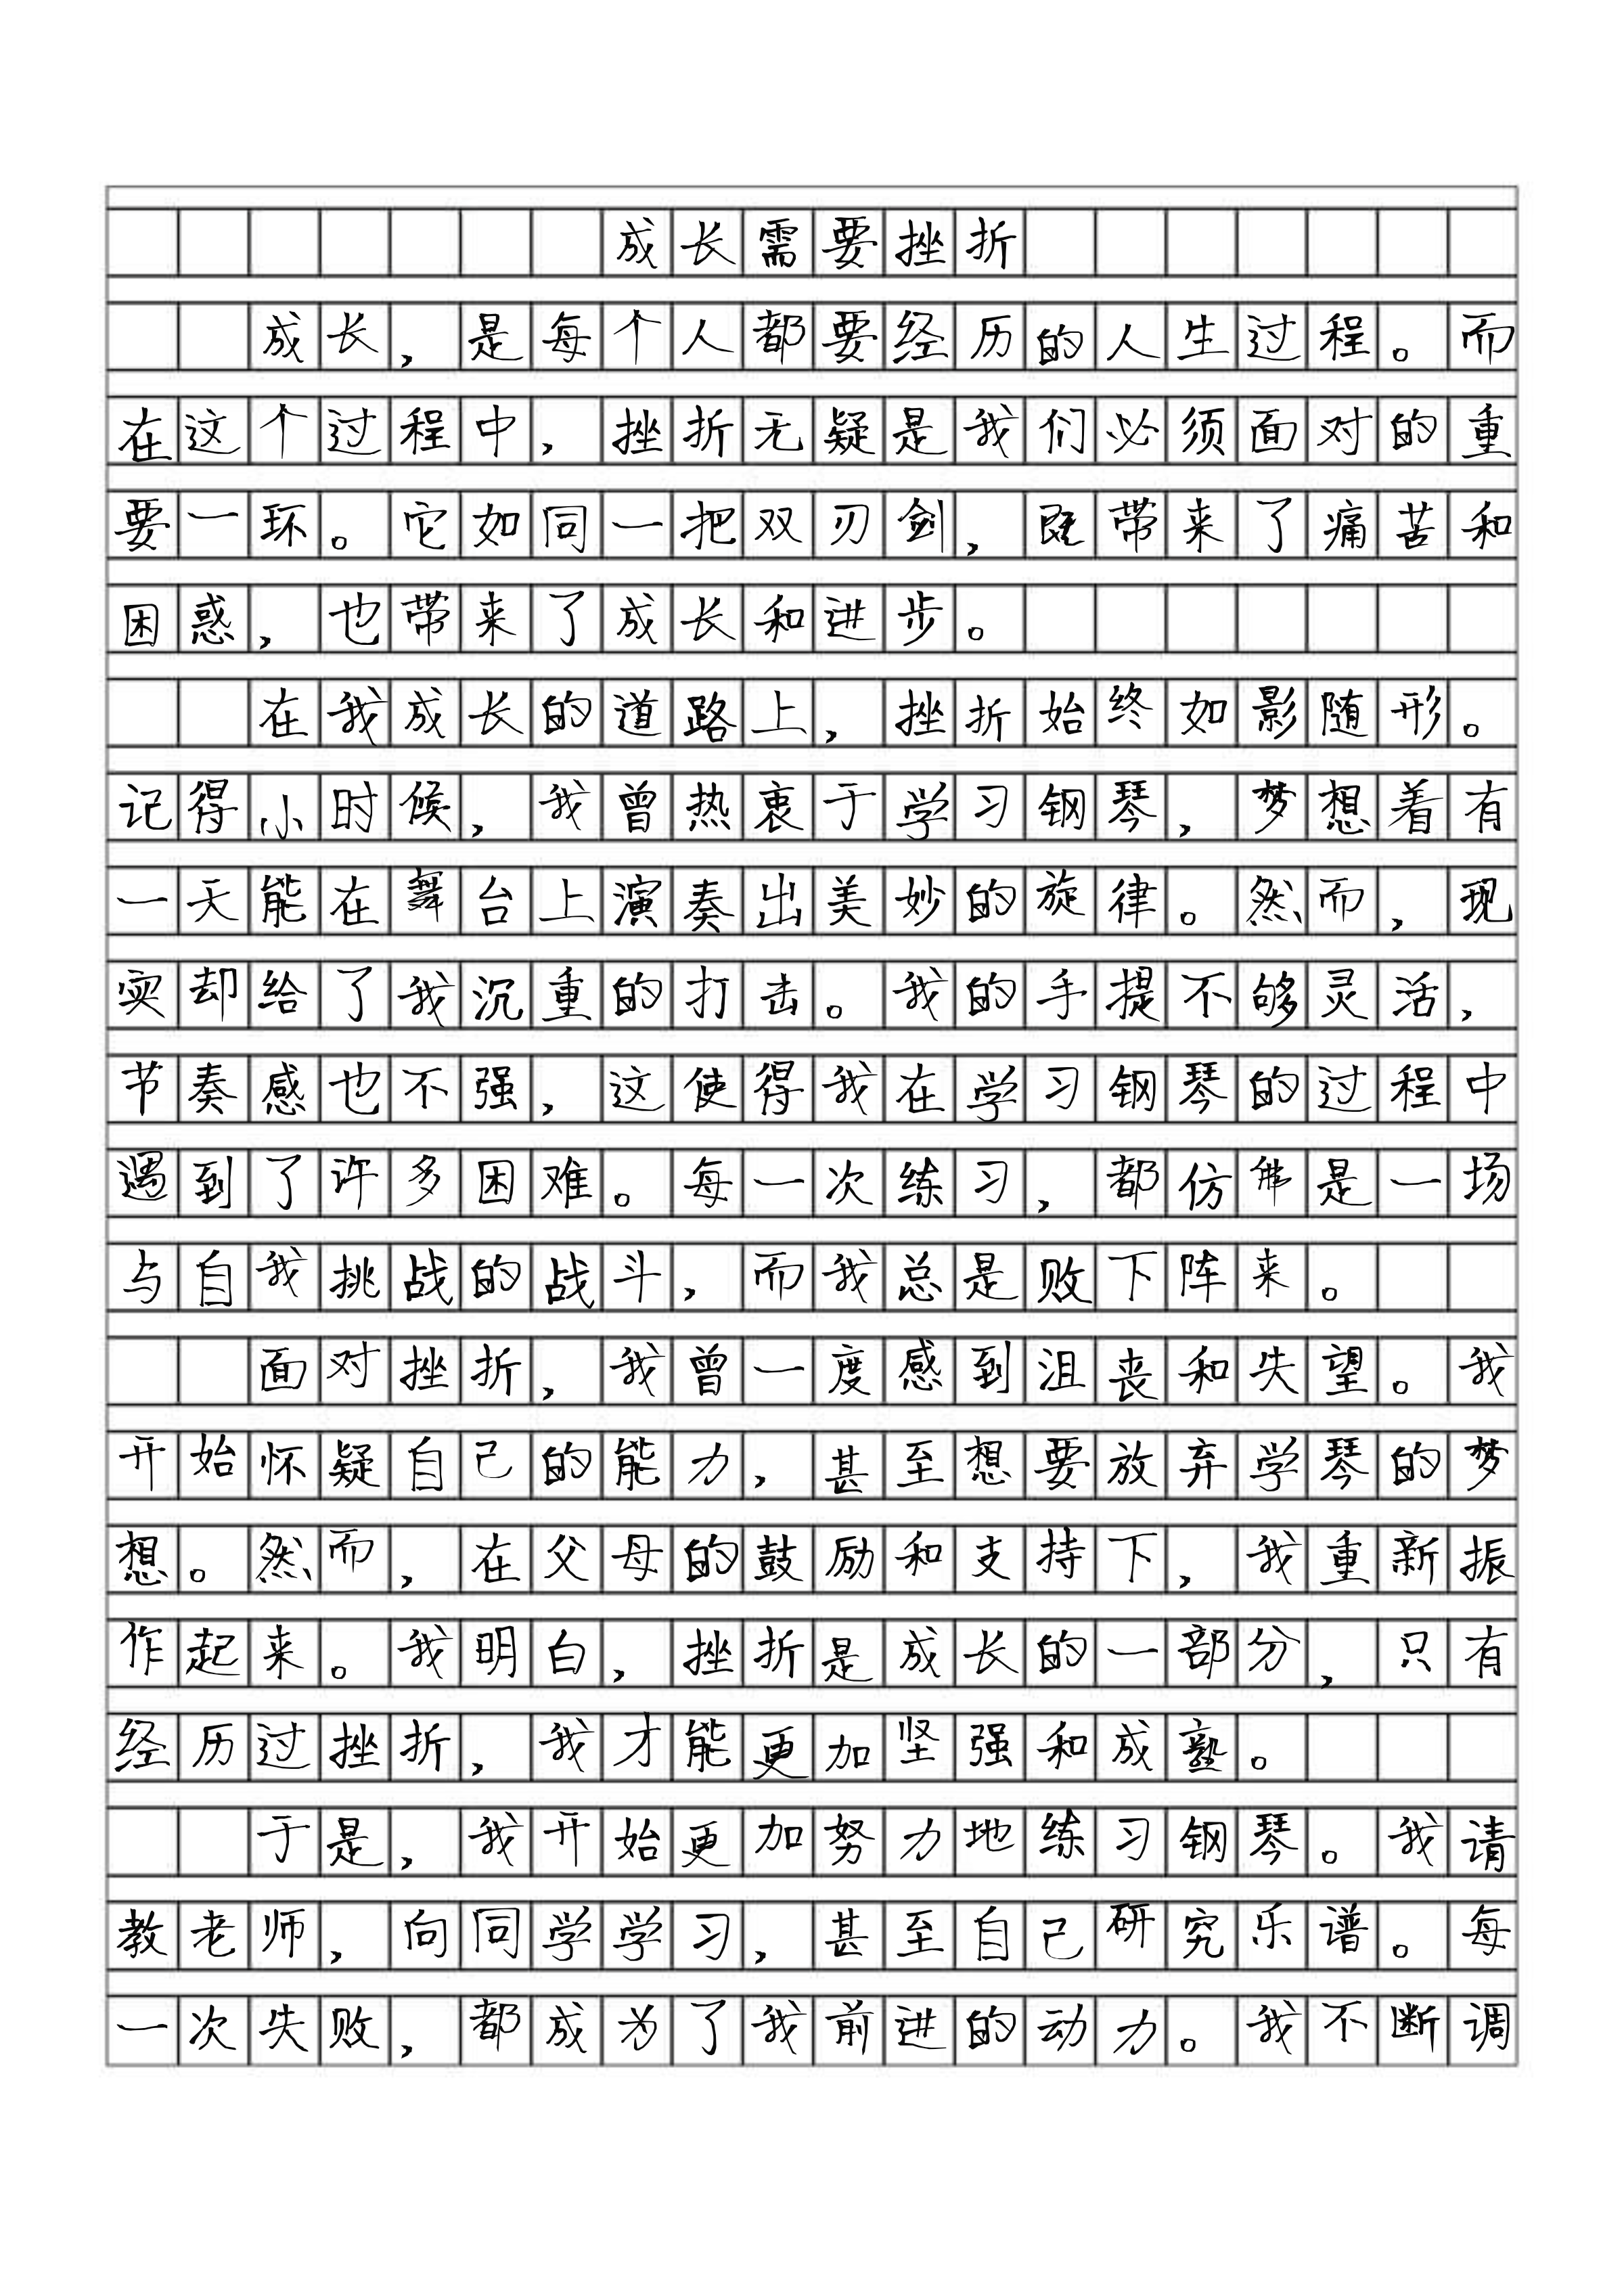 成长需要挫折
成长，是每个人都要经历的人生过程。而
在这个过程中，挫折无疑是我们必须面对的重
要一环。它如同一把双刃剑，既带来了痛苦和
困惑，也带来了成长和进步。
在我成长的道路上，挫折始终如影随形。
记得小时候，我曾热衷于学习钢琴，梦想着有
一天能在舞台上演奏出美妙的旋律。然而，现
实却给了我沉重的打击。我的手提不够灵活，
节奏感也不强，这使得我在学习钢琴的过程中
遇到了许多困难。每一次练习，都仿佛是一场
与自我挑战的战斗，而我总是败下阵来。
面对挫折，我曾一度感到沮丧和失望。我
开始怀疑自己的能力，甚至想要放弃学琴的梦
想。然而，在父母的鼓励和支持下，我重新振
作起来。我明白，挫折是成长的一部分，只有
经历过挫折，我才能更加坚强和成熟。
于是，我开始更加努力地练习钢琴。我请
教老师，向同学学习，甚至自己研究乐谱。每
一次失败，都成为了我前进的动力。我不断调